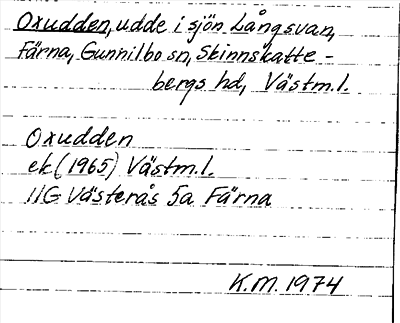 Oxudden, udde i sjön Långsvan,
Färna, Gunnilbo sn, Skinnskatte-
bergs hd, Västm.l.
Oxudden
ek (1965) Västm.l.
11G Västerås 5a Färna
K.M. 1974